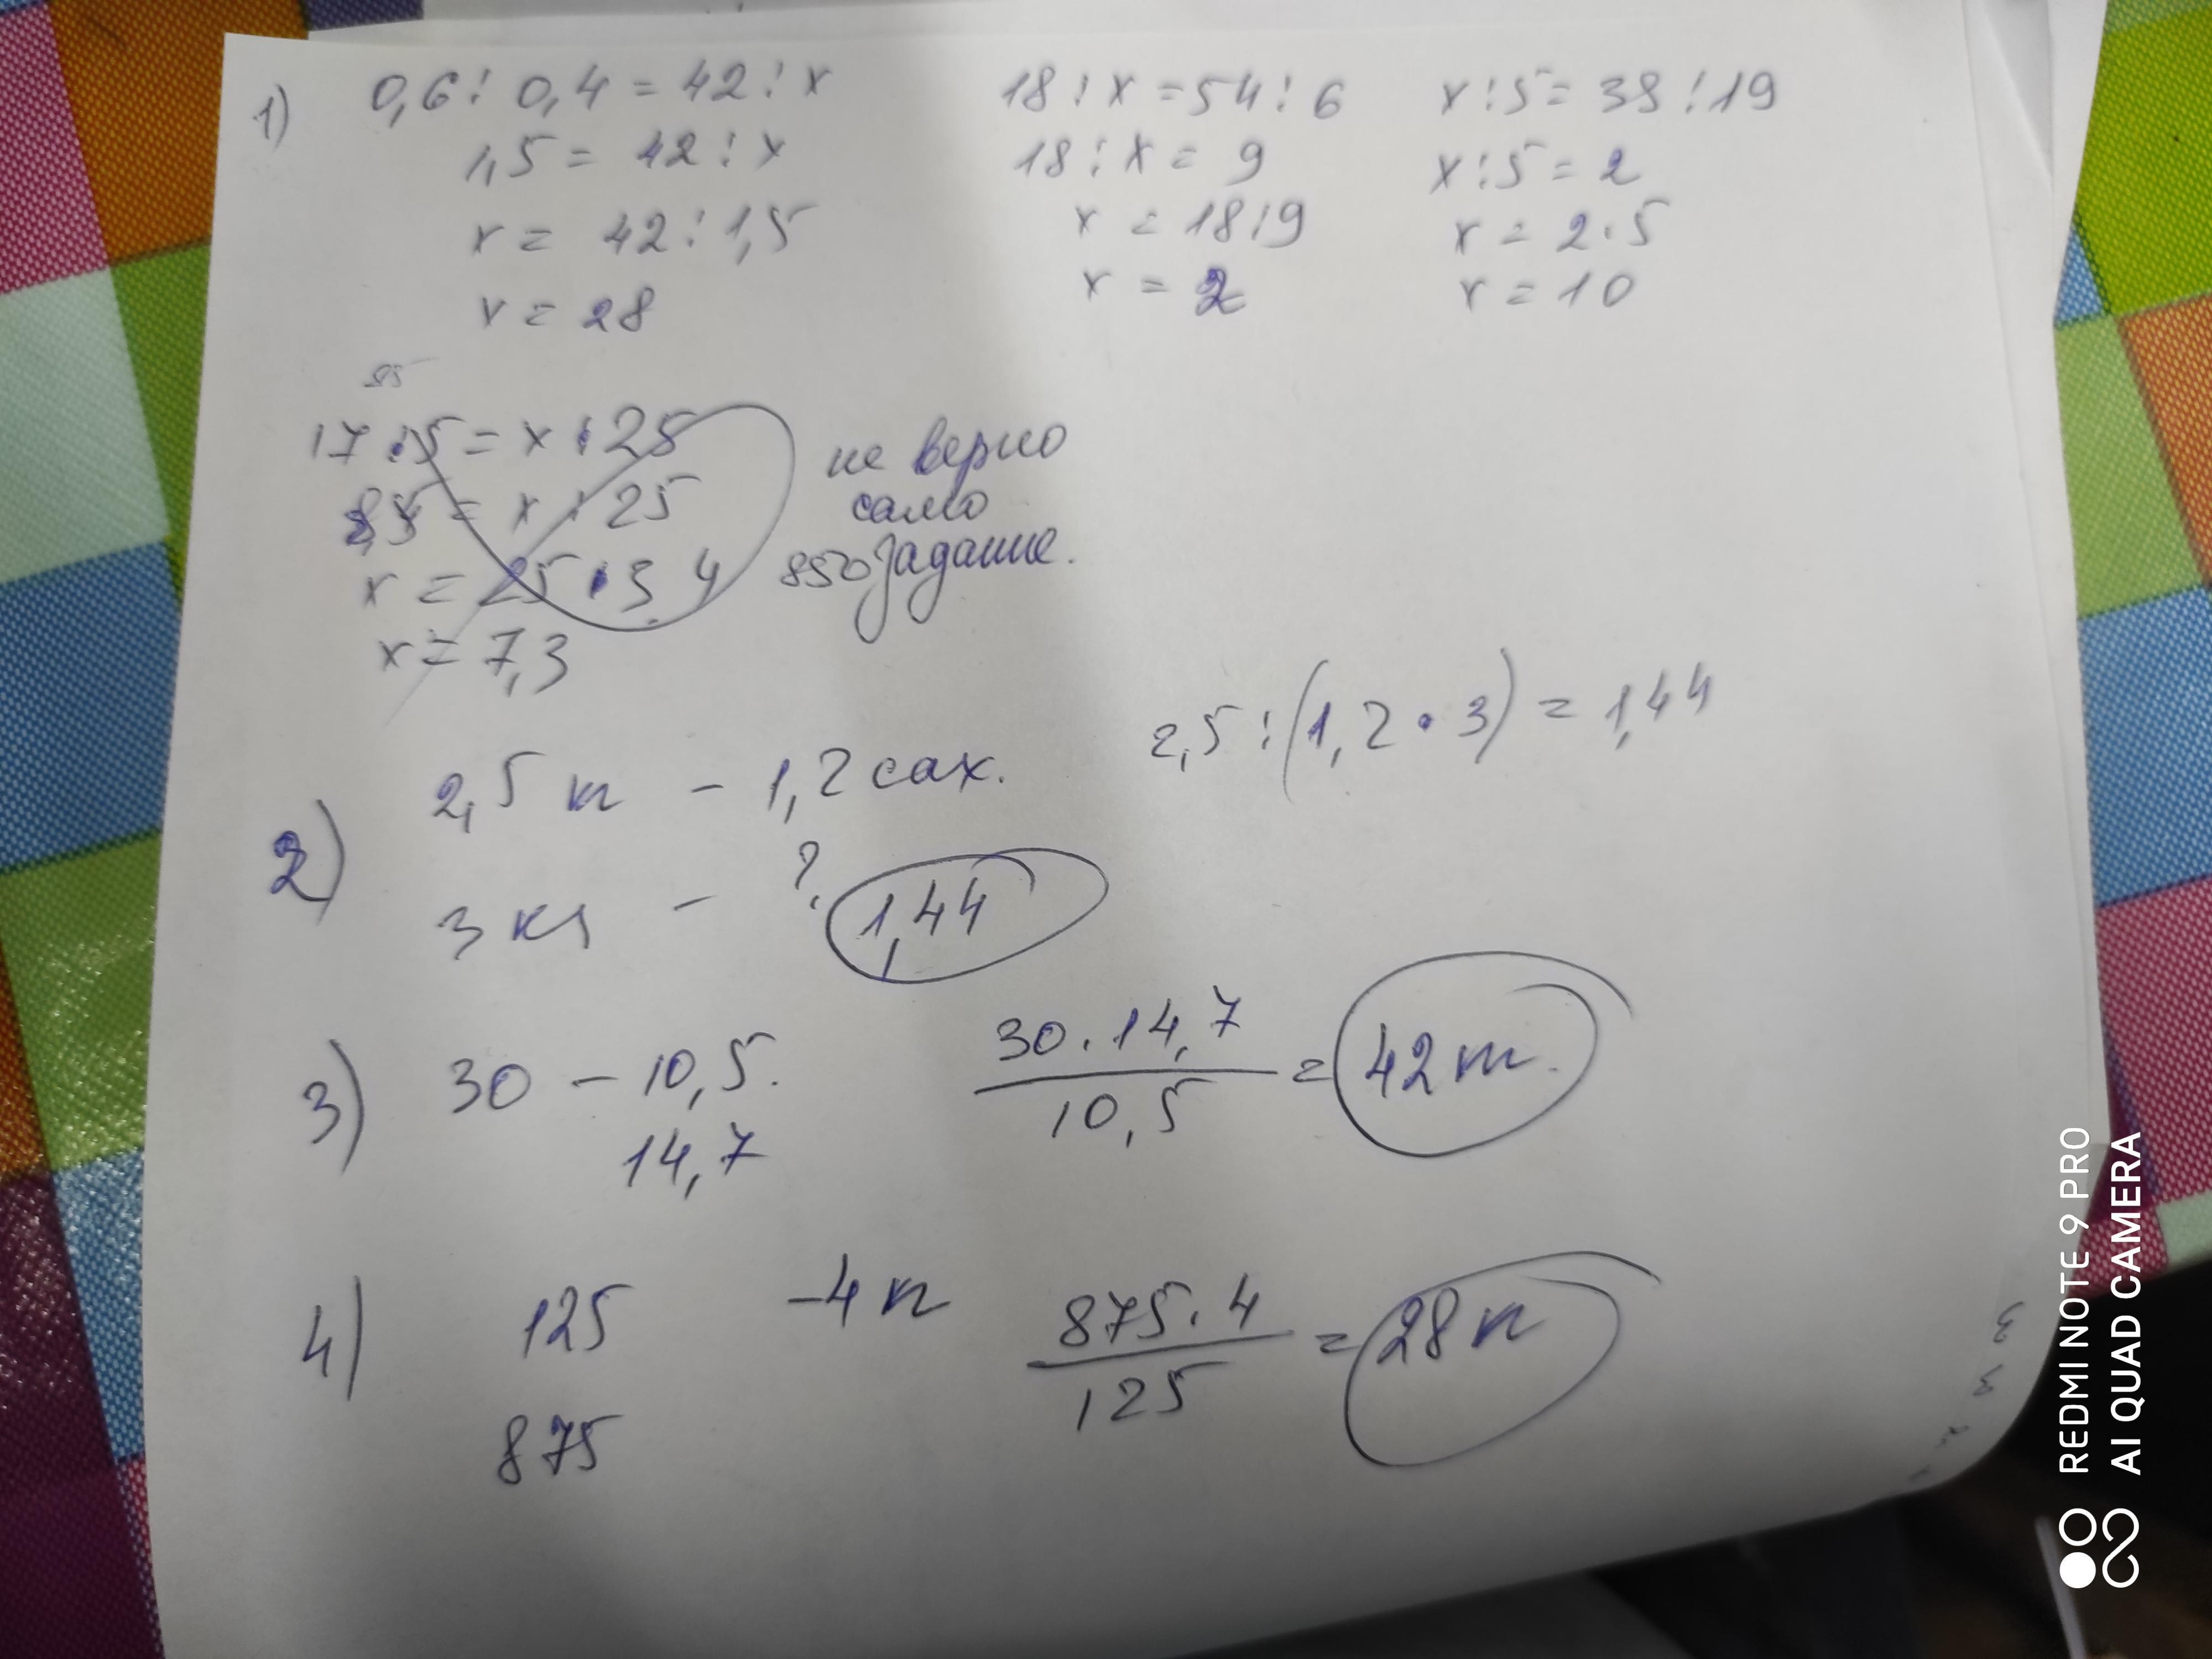 1) 0,6 : 0,4 = 42 : x
1,5 = 42 : x
x = 42 : 1,5
x = 28
18 : x = 54 : 6
18 : x = 9
x = 18 : 9
x = 2
x : 5 = 38 : 19
x : 5 = 2
x = 2 · 5
x = 10
17 : 5 = x : 25
= x : 25
x = 25 · 3,4
x = 7,3
не верно
само
850 задание.
2) 2,5 кг – 1,2 сах.
3 кг – ? 1,44
2,5 : (1,2 · 3) = 1,44
3) 30 – 10,5.
14,7
30 · 14,7
10,5
= 42 т.
4) 125 – 4 кг
875
875 · 4
125
= 28 кг
REDMI NOTE 9 PRO
AI QUAD CAMERA